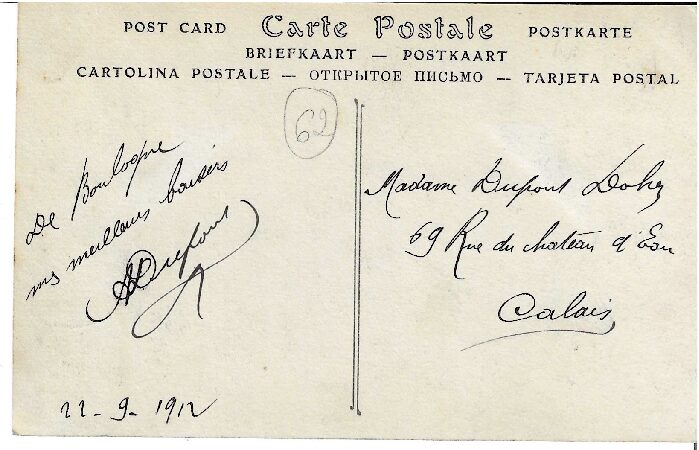 POST CARD Carte Postale POSTKARTE
BRIEFKAART — POSTKAART
CARTOLINA POSTALE — ОТКРЫТОЕ ПИСЬМО — TARJETA POSTAL
62
De Boulogne
mes meilleurs baisers
ADupont
22-9-1912
Madame Dupont Dohy
69 Rue du chateau d'Eau
Calais